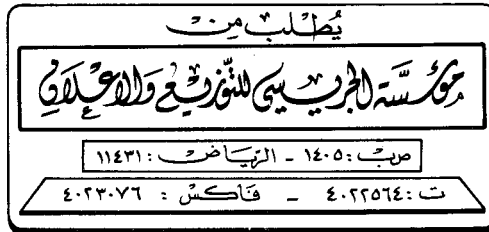 يُطلب مِنْ
مؤسَّسَة الجريسي للتَّوزيع وَالإعْلَان
صرب : ١٤٠٥ - الرّيَاض : ١١٤٣١
ت : ٤٠٢٢٥٦٤ - فاكسْ : ٤٠٢٣٠٧٦